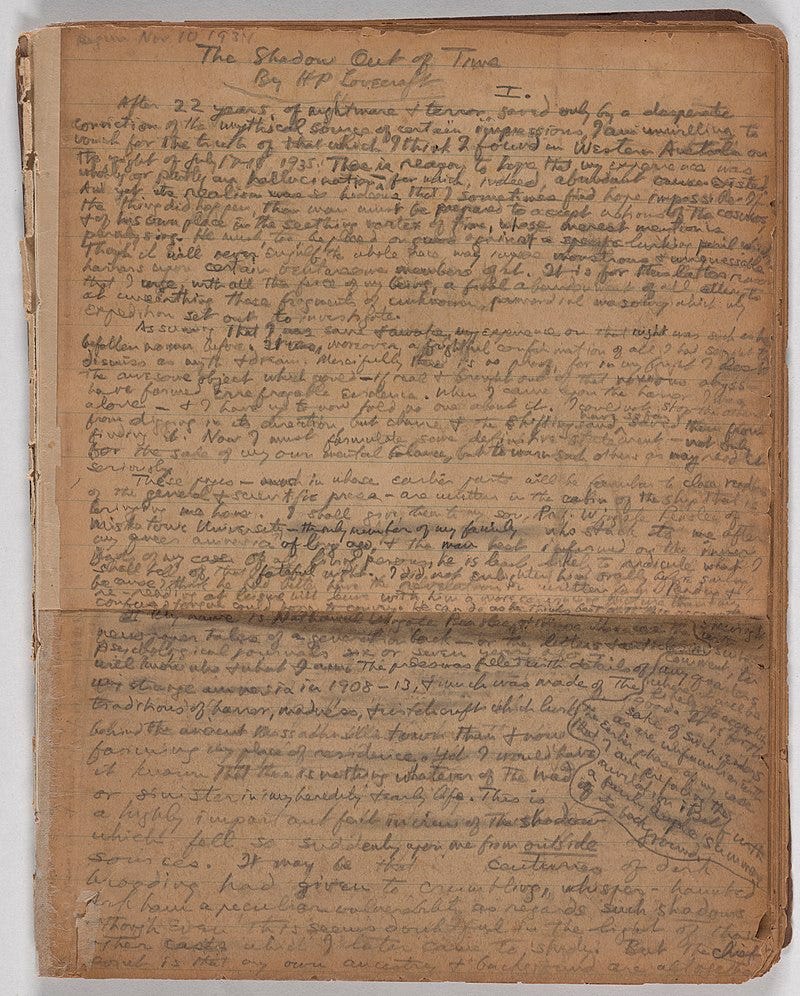 Begun Nov. 10 1934
The Shadow Out of Time
By HP Lovecraft
I.
After 22 years of nightmare & terror, saved only by a desperate
conviction of the mythical source of certain impressions, I am unwilling to
vouch for the truth of that which I think I found in Western Australia on
the night of July 17-18 1935. There is reason to hope that my experience was
wholly or partly an hallucination, for which, indeed, abundant causes existed.
And yet its realism was so hideous that I sometimes find hope impossible. If
the thing did happen, then man must be prepared to accept notions of the cosmos,
& of his own place in the seething vortex of time, whose merest mention is
paralysing. He must, too, be placed on guard against a specific lurking peril which
though it will never engulf the whole race, may impose monstrous & unguessable
horrors upon certain venturesome members of it. It is for this latter reason
that I urge, with all the force of my being, a final abandonment of all attempts
at unearthing those fragments of unknown, primordial masonry which my
expedition set out to investigate.
Assuming that I was sane & awake, my experience on that night was such as has
befallen no man before. It was, moreover, a frightful confirmation of all I had sought to
dismiss as myth & dream. Mercifully there is no proof, for in my fright I lost
the awesome object which would—if real & brought out of that noxious abyss—
have formed irrefragable evidence. When I came upon the horror I was
alone — & I have up to now told no one about it. I could not stop the others
from digging in its direction, but chance & the shifting sand have so far saved them from
finding it. Now I must formulate some definitive statement — not only
for the sake of my own mental balance, but to warn such others as may read it
seriously.
These pages — much in whose earlier parts will be familiar to close readers
of the general & scientific press — are written in the cabin of the ship that is
bringing me home. I shall give them to my son, Prof. Wingate Peaslee of
Miskatonic University — the only member of my family who stuck to me after
my queer amnesia of long ago, & the man best informed on the inner
facts of my case. Of all living persons, he is least likely to ridicule what I
shall tell of that fateful night. I did not enlighten him orally before sailing
because I think he had better have the revelation in written form. Reading &
re-reading at leisure will leave with him a more convincing picture than my
confused tongue could hope to convey. He can do as he thinks best
My name is Nathaniel Wingate Peaslee, & those who recall the
newspaper tales of a generation back — or the letters & articles in
psychological journals six or seven years ago —
will know who & what I am. The press was filled with details of my
strange amnesia in 1908–13, & much was made of the
traditions of horror, madness, & witchcraft which lurk
behind the ancient Massachusetts town then & now
forming my place of residence. Yet I would have
it known that there is nothing whatever of the mad
or sinister in my heredity & early life. This is
a highly important fact in view of the shadow
which fell so suddenly upon me from outside
sources. It may be that centuries of dark
brooding had given to crumbling, whisper-haunted
Arkham a peculiar vulnerability as regards such shadows
—though even this seems doubtful in the light of those
other cases which I later came to study. But the chief
point is that my own ancestry & background are altogether
sake of such readers
as are unfamiliar with
the earlier phases of my case
that I am prefacing the
revelation itself with
a fairly ample summary
of its background